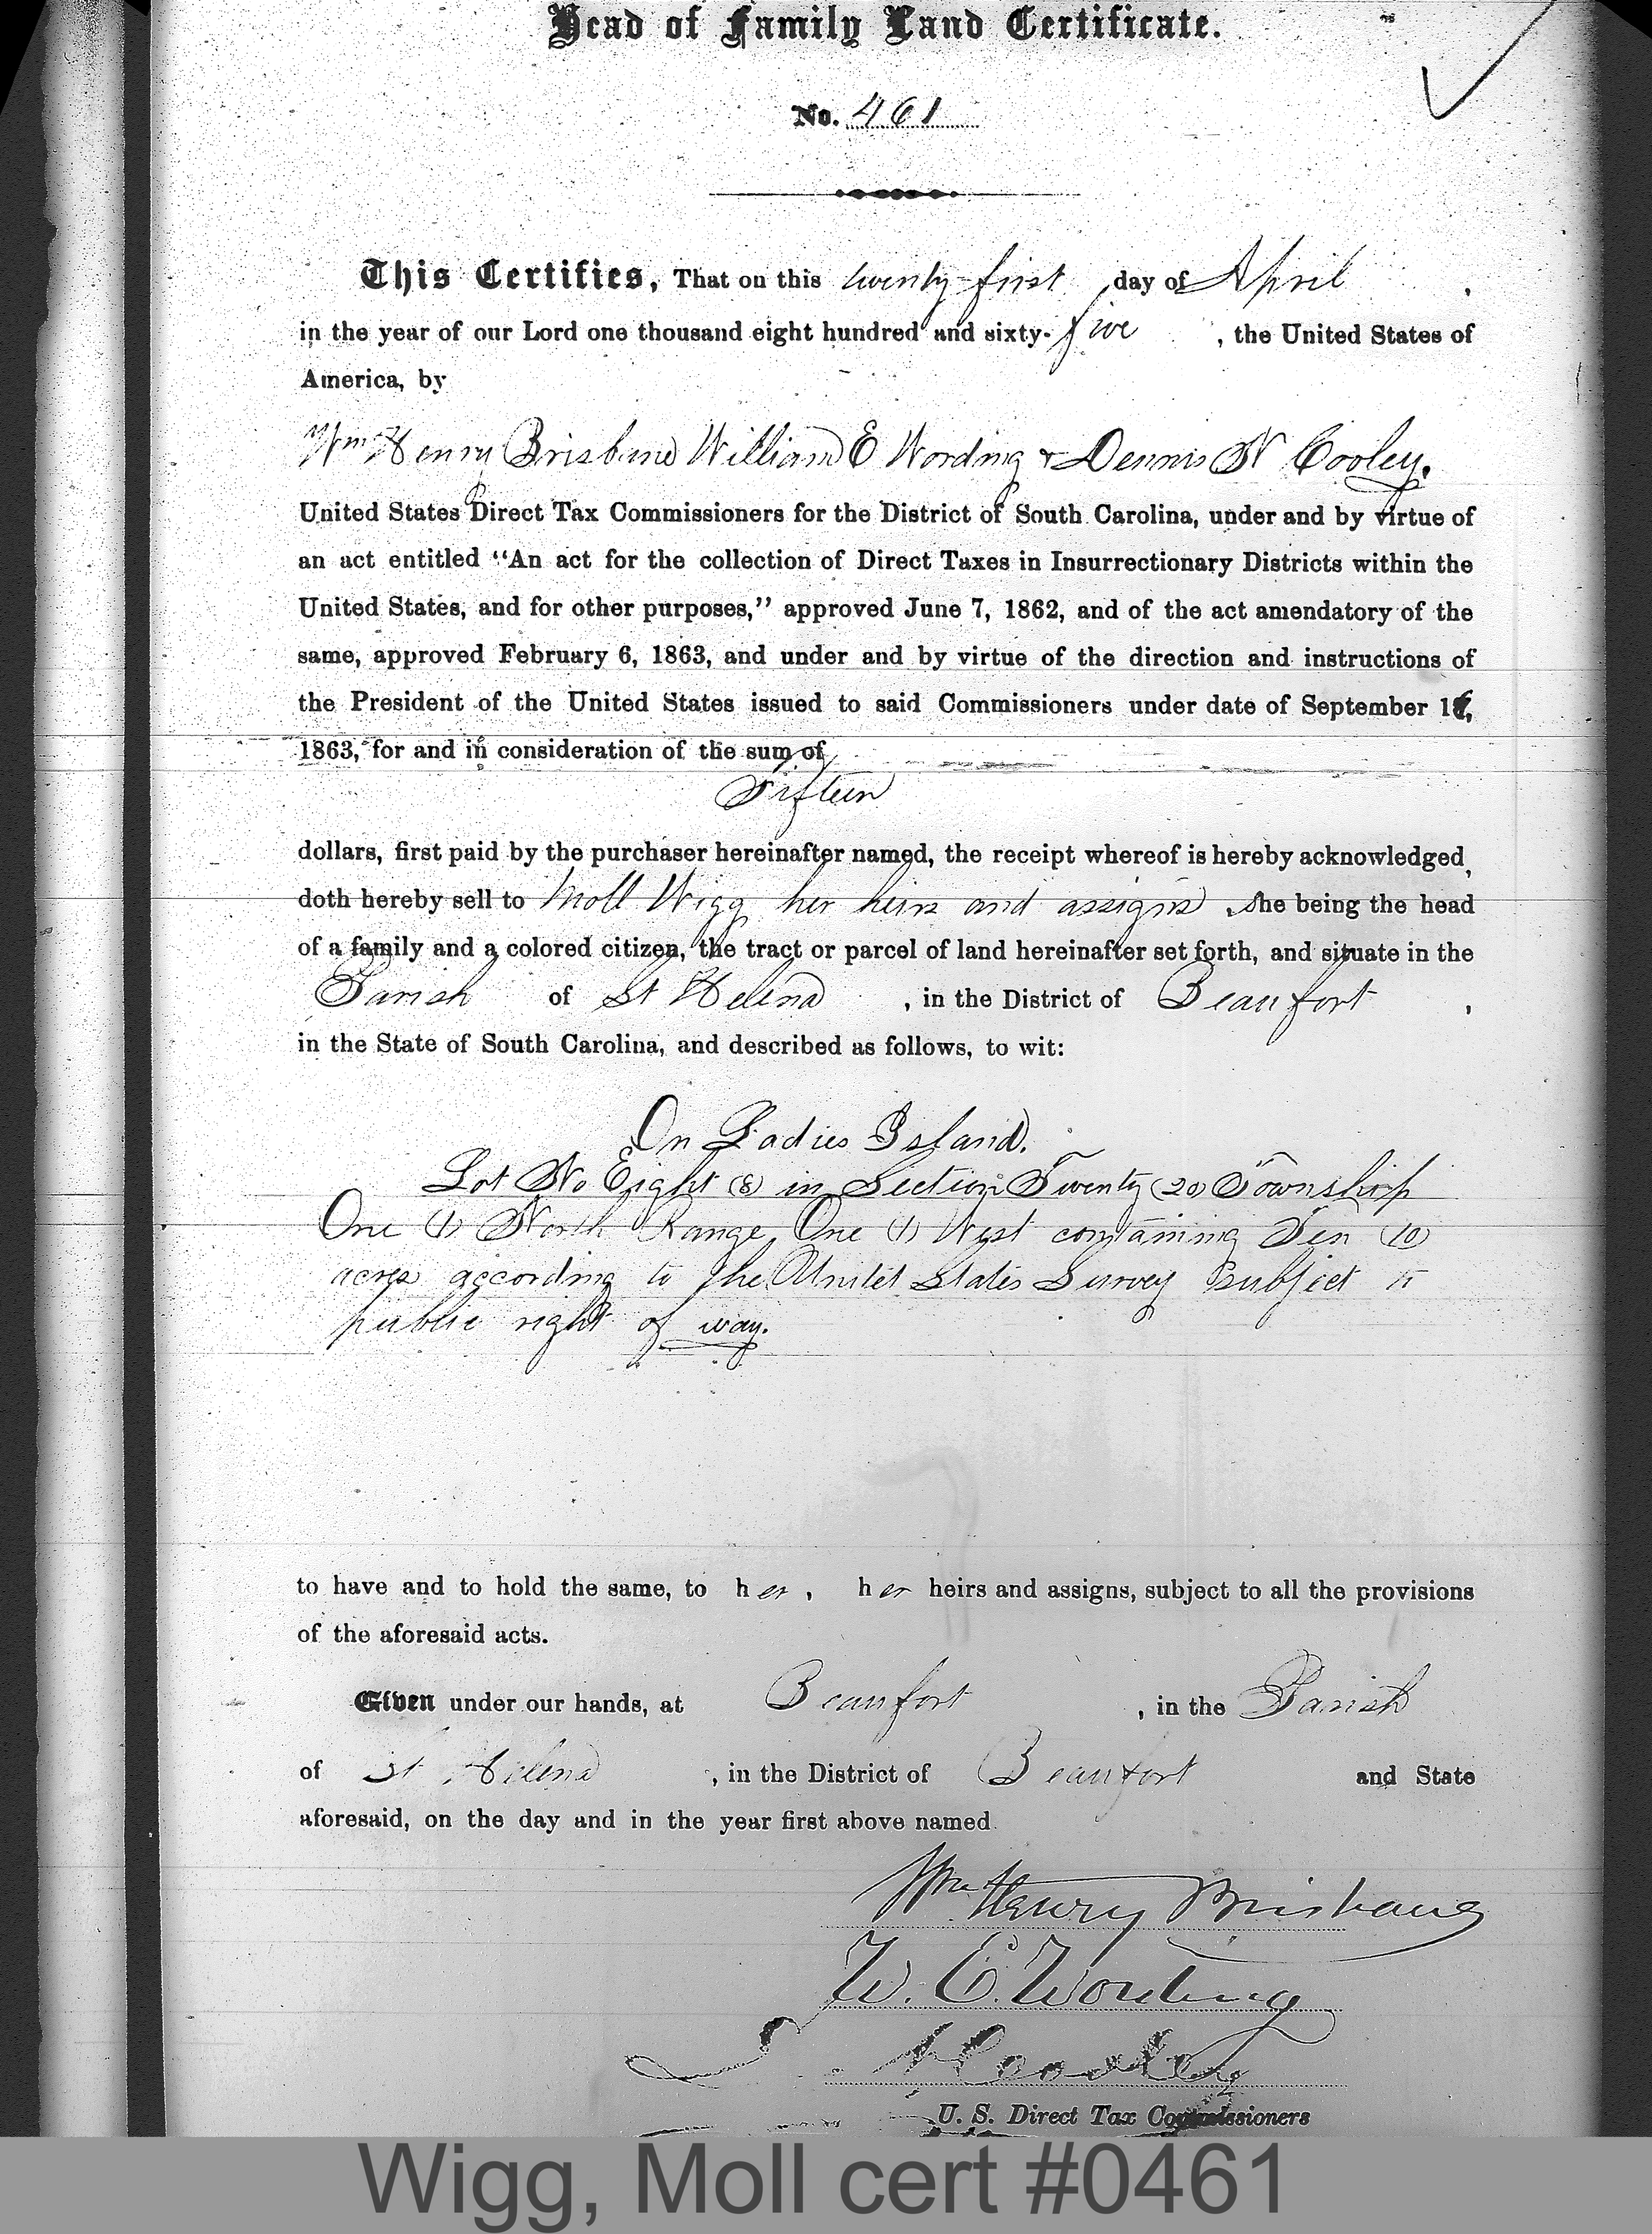 Head of Family Land Certificate.
No. 461
This Certifies, That on this twenty-first day of April,
in the year of our Lord one thousand eight hundred and sixty-five, the United States of
America, by
Wm Henry Brisbane William E Wording & Dennis N Cooley.
United States Direct Tax Commissioners for the District of South Carolina, under and by virtue of
an act entitled "An act for the collection of Direct Taxes in Insurrectionary Districts within the
United States, and for other purposes," approved June 7, 1862, and of the act amendatory of the
same, approved February 6, 1863, and under and by virtue of the direction and instructions of
the President of the United States issued to said Commissioners under date of September
1863, for and in consideration of the sum of
Fifteen
dollars, first paid by the purchaser hereinafter named, the receipt whereof is hereby acknowledged,
doth hereby sell to Moll Wigg her heirs and assigns, she being the head
of a family and a colored citizen, the tract or parcel of land hereinafter set forth, and situate in the
Parish of St Helena, in the District of Beaufort,
in the State of South Carolina, and described as follows, to wit:
On Ladies Island.
Lot No Eight (8) in Section Twenty (20) Township
One (1) North Range One (1) West containing Ten (10)
acres according to the United States Survey subject to
public right of way.
to have and to hold the same, to her, her heirs and assigns, subject to all the provisions
of the aforesaid acts.
Given under our hands, at Beaufort, in the Parish
of St Helena, in the District of Beaufort and State
aforesaid, on the day and in the year first above named.
Wm. Henry Brisbane
W. E. Wording
D. N. Cooley
U. S. Direct Tax Commissioners
Wigg, Moll cert #0461